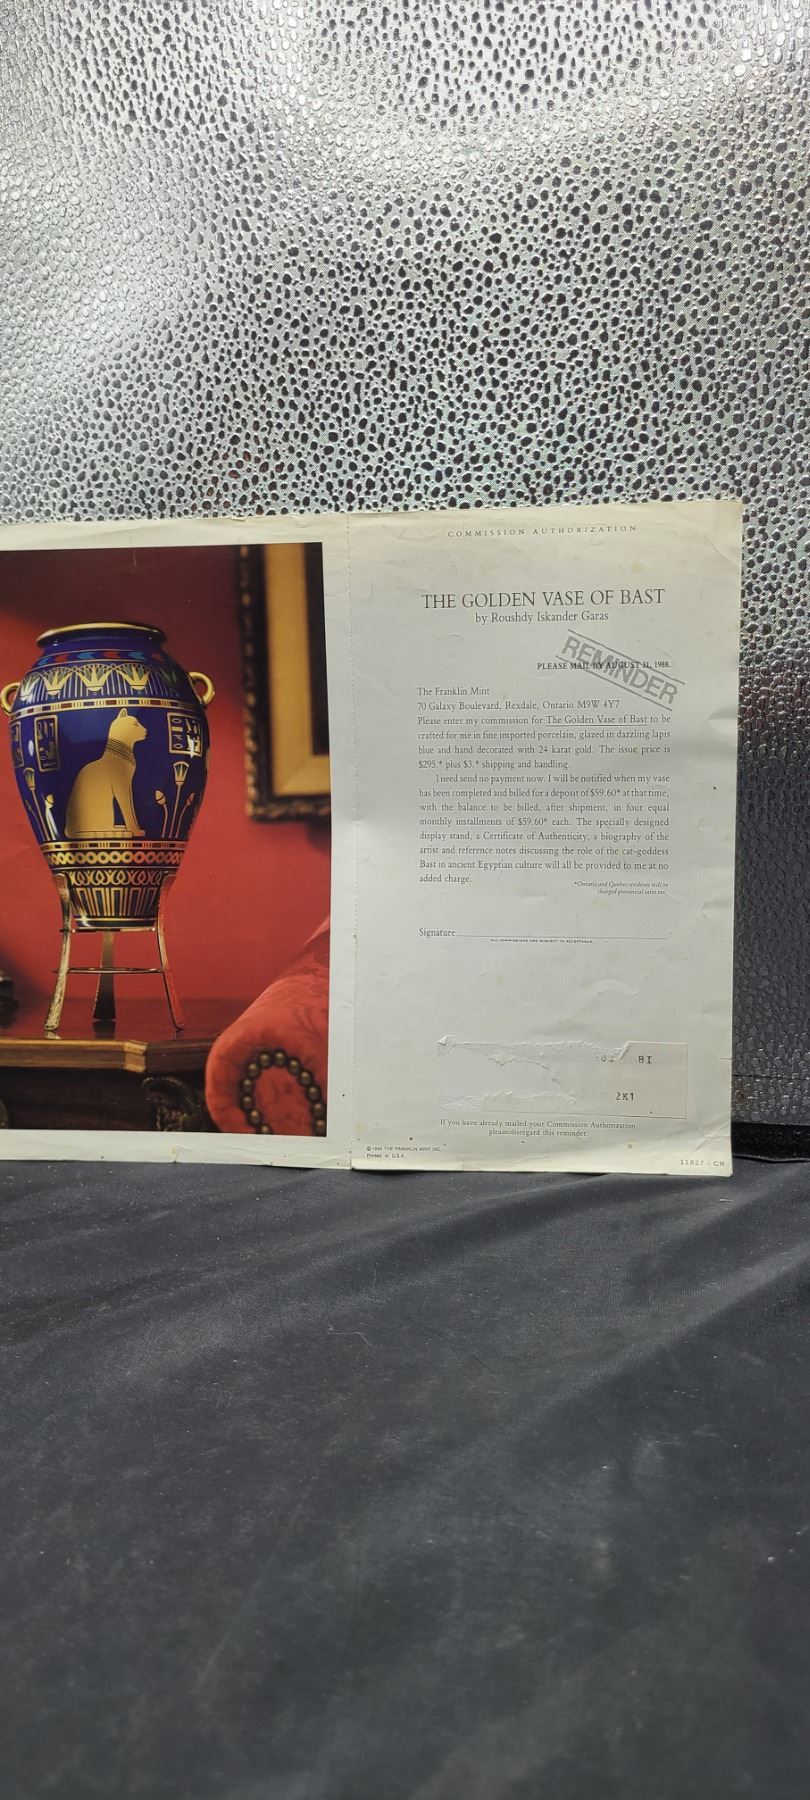 COMMISSION AUTHORIZATION
THE GOLDEN VASE OF BAST
by Roushdy Iskander Garas
REMINDER
PLEASE MAIL BY AUGUST 31, 1988.
The Franklin Mint
70 Galaxy Boulevard, Rexdale, Ontario M9W 4Y7
Please enter my commission for The Golden Vase of Bast to be
crafted for me in fine imported porcelain, glazed in dazzling lapis
blue and hand decorated with 24 karat gold. The issue price is
$295.* plus $3.* shipping and handling.
I need send no payment now. I will be notified when my vase
has been completed and billed for a deposit of $59.60* at that time,
with the balance to be billed, after shipment, in four equal
monthly installments of $59.60* each. The specially designed
display stand, a Certificate of Authenticity, a biography of the
artist and reference notes discussing the role of the cat-goddess
Bast in ancient Egyptian culture will all be provided to me at no
added charge.
*Ontario and Quebec residents will be
charged provincial sales tax.
Signature
ALL COMMISSIONS ARE SUBJECT TO ACCEPTANCE.
BI
2K1
If you have already mailed your Commission Authorization,
please disregard this reminder.
© 1988 THE FRANKLIN MINT INC.
Printed in U.S.A.
11827-CR